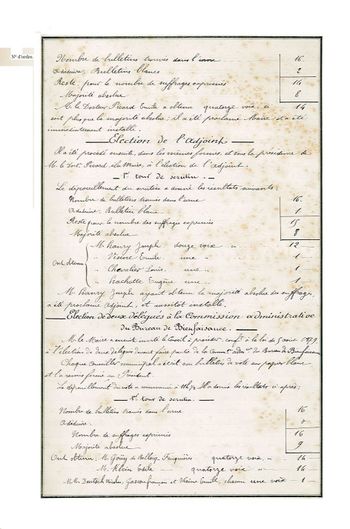 N° d'ordre.
Nombre de bulletins trouvés dans l'urne 16
à déduire: Bulletins blancs 2
Reste, pour le nombre de suffrages exprimés 14
Majorité absolue 8
M. le Docteur Picard Emile a obtenu quatorze voix 14
soit plus que la majorité absolue, il a été proclamé Maire et a été
immédiatement installé.
Election de l'adjoint.
Il a été procédé ensuite, dans les mêmes formes, et sous la présidence de
M. le Doct. Picard, élu Maire, à l'élection de l'adjoint.
1er tour de scrutin.
Le dépouillement du scrutin a donné les résultats suivants:
Nombre de bulletins trouvés dans l'urne 16
à déduire: Bulletin blanc 1
Reste pour le nombre des suffrages exprimés 15
Majorité absolue 8
M. Joseph douze voix 12
Ont obtenu Emile une 1
Chevalier Louis, une 1
Hachette Eugène une 1
M. Joseph ayant obtenu la majorité absolue des suffrages,
a été proclamé adjoint, et aussitôt installé.
Election de deux délégués à la Commission administrative
du Bureau de Bienfaisance.
M. le Maire a ensuite invité le Conseil à procéder, conf. à la loi du 5 août 1879
à l'élection de deux délégués devant faire partie de la Comm. adm. du Bureau de Bienfaisance
Chaque Conseiller municipal a écrit son bulletin de vote sur papier blanc
et l'a remis fermé au Président.
Le dépouillement du vote a commencé à et a donné les résultats ci-après:
1er tour de scrutin.
Nombre de bulletins trouvés dans l'urne 16
à déduire
Nombre de suffrages exprimés 16
Majorité absolue 9
Ont obtenu: M. François quatorze voix 14
M. Klein quatorze voix 14
MM. François et Emile, chacun une voix 1